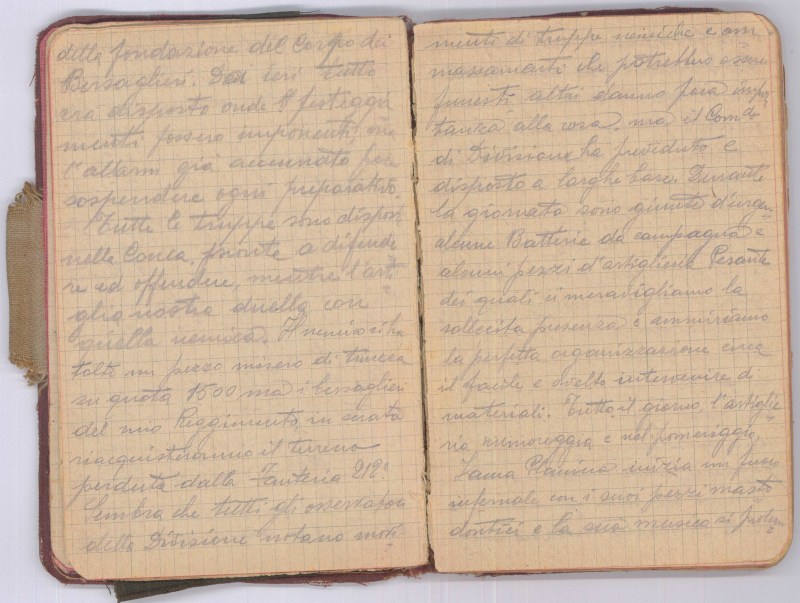 della fondazione del Corpo dei
Bersaglieri. Da ieri tutto
era disposto onde i festeggia
menti fossero imponenti, ma
l'allarmi già accennato fece
sospendere ogni preparativo.
Tutte le truppe sono disposte
nella Conca, pronte a difende
re ed offendere, mentre l'arti=
glia nostra duella con
quella nemica. Il nemico ci ha
tolto un pezzo misero di trincea
su quota 1500 ma i bersaglieri
del mio Reggimento, in serata
riacquisteranno il terreno
perduto dalla Fanteria 212ª
Sembra che tutti gli osservatori
della Divisione notano movi=
menti di truppe nemiche e am
massamenti che potrebbero essere
funesti, altri danno poca impor
tanza alla cosa, ma il Comdo
di Divisione ha preveduto e
disposto a larghe base. Durante
la giornata sono giunte d'urgen=
alcune Batterie da campagna e
alcuni pezzi d'artiglieria Pesante
dei quali ci meravigliamo la
sollecita presenza e ammiriamo
la perfetta organizzazione circa
il facile e svelto intervenire di
materiali. Tutto il giorno l'artiglie
ria rumoreggia e nel pomeriggio,
inizia un fuoco
infernale con i suoi pezzi masto
dontici e la sua musica si prolun=